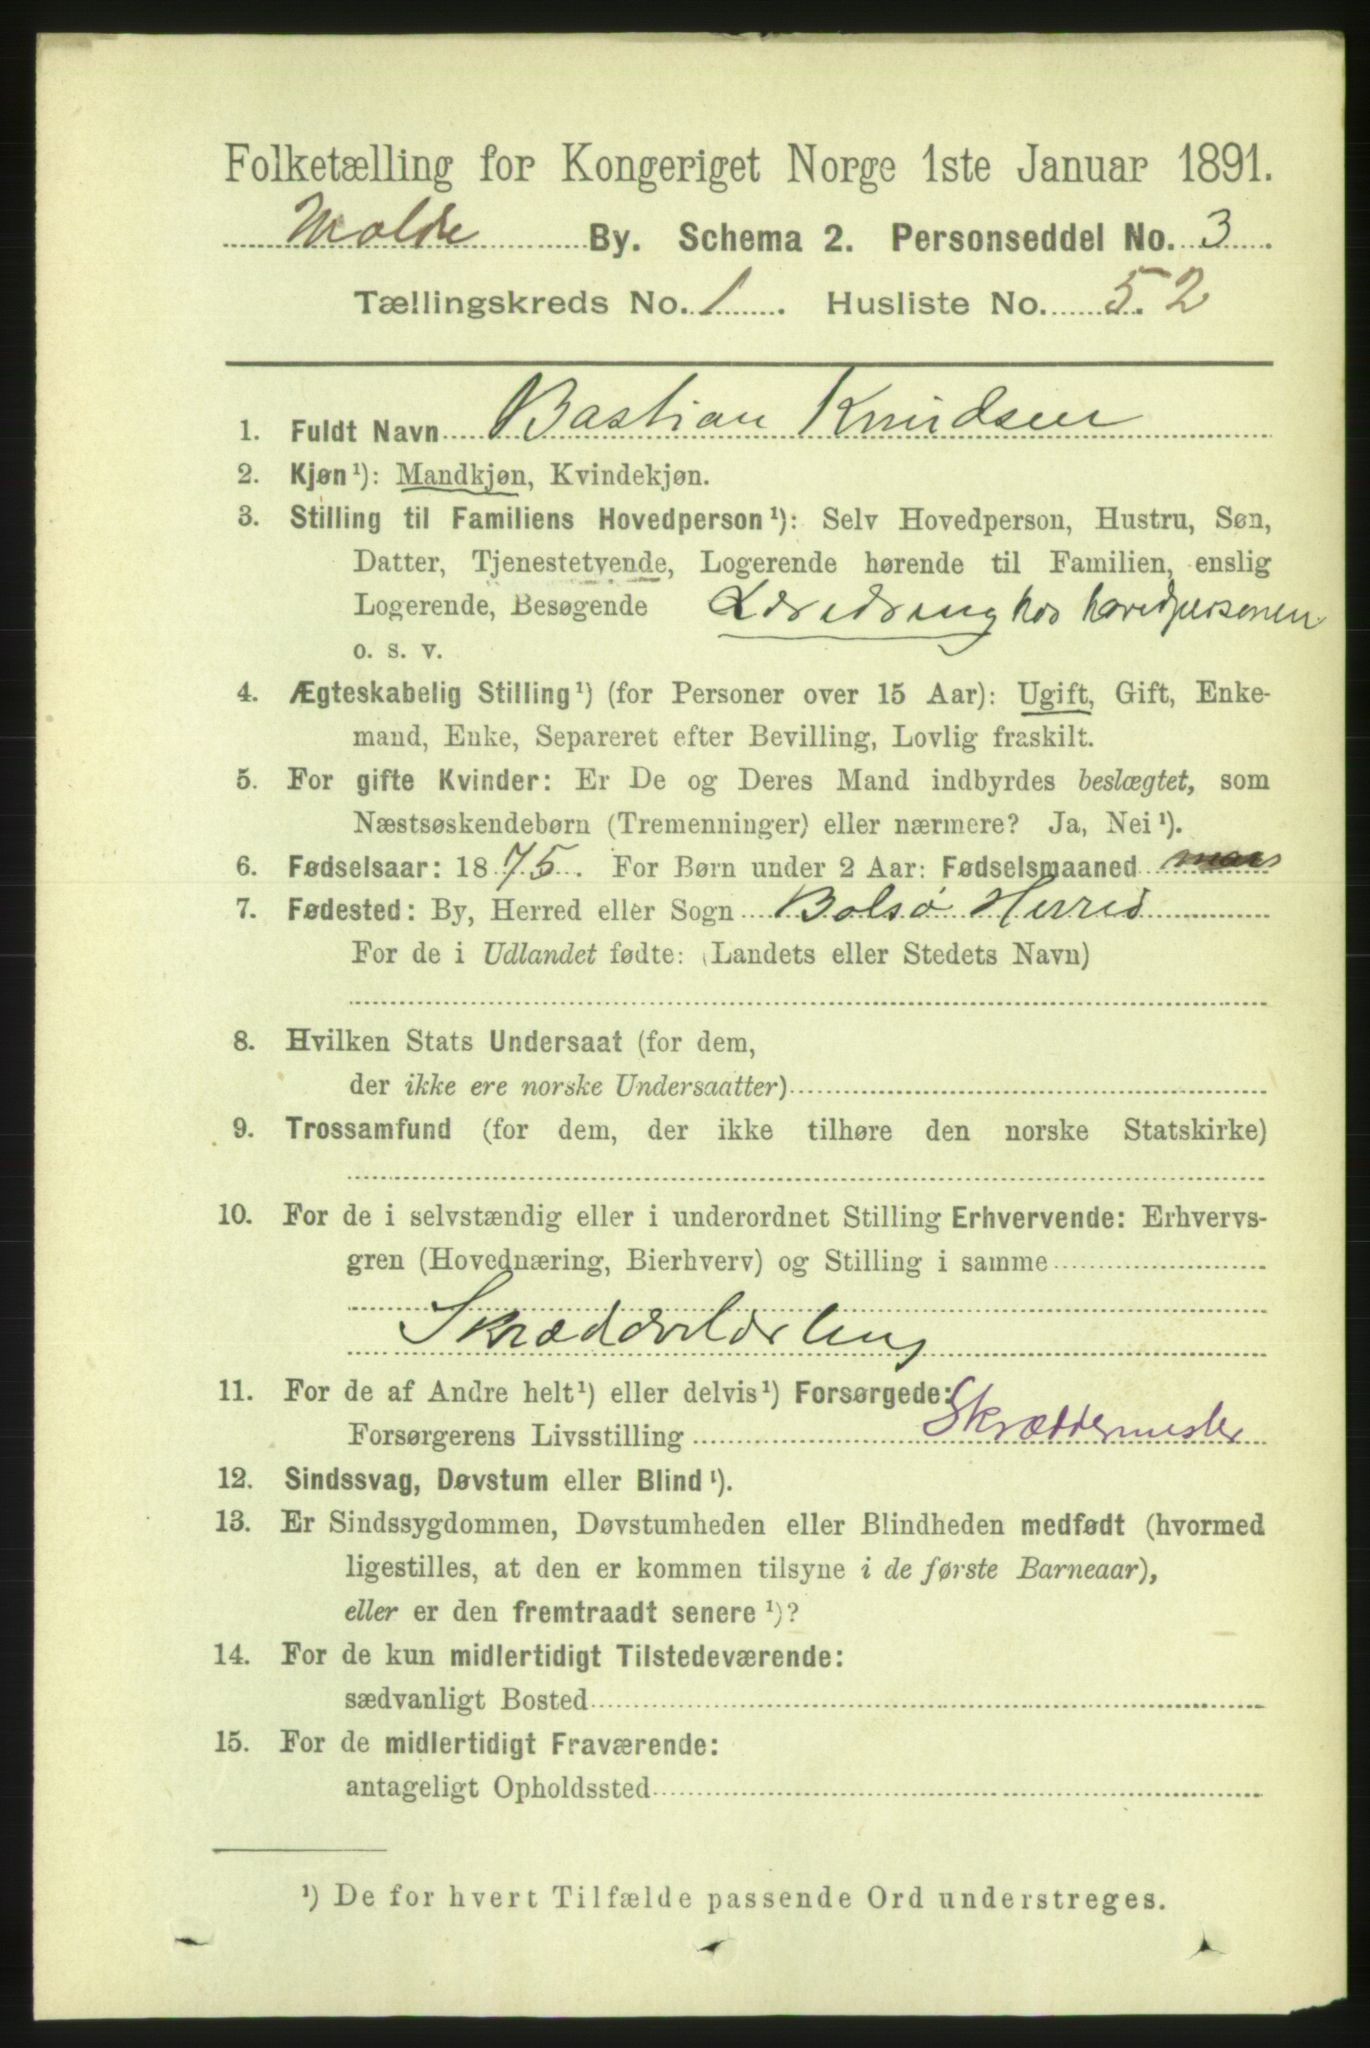 Folketælling for Kongeriget Norge 1ste Januar 1891.
Molde By. Schema 2. Personseddel No. 3
Tællingskreds No. 1. Husliste No. 52
1. Fuldt Navn Bastian Knudsen
2. Kjøn¹): Mandkjøn, Kvindekjøn.
3. Stilling til Familiens Hovedperson¹): Selv Hovedperson, Hustru, Søn,
Datter, Tjenestetyende, Logerende hørende til Familien, enslig
Logerende, Besøgende hos hovedpersonen
o. s. v.
4. Ægteskabelig Stilling¹) (for Personer over 15 Aar): Ugift, Gift, Enke-
mand, Enke, Separeret efter Bevilling, Lovlig fraskilt.
5. For gifte Kvinder: Er De og Deres Mand indbyrdes beslægtet, som
Næstsøskendebørn (Tremenninger) eller nærmere? Ja, Nei¹).
6. Fødselsaar: 1875. For Børn under 2 Aar: Fødselsmaaned
7. Fødested: By, Herred eller Sogn Bolsø Herred
For de i Udlandet fødte: (Landets eller Stedets Navn)
8. Hvilken Stats Undersaat (for dem,
der ikke ere norske Undersaatter)
9. Trossamfund (for dem, der ikke tilhøre den norske Statskirke)
10. For de i selvstændig eller i underordnet Stilling Erhvervende: Erhvervs-
gren (Hovednæring, Bierhverv) og Stilling i samme
Skrædderlærling
11. For de af Andre helt¹) eller delvis¹) Forsørgede:
Forsørgerens Livsstilling Skræddermester
12. Sindssvag, Døvstum eller Blind¹).
13. Er Sindssygdommen, Døvstumheden eller Blindheden medfødt (hvormed
ligestilles, at den er kommen tilsyne i de første Barneaar),
eller er den fremtraadt senere¹)?
14. For de kun midlertidigt Tilstedeværende:
sædvanligt Bosted
15. For de midlertidigt Fraværende:
antageligt Opholdssted
¹) De for hvert Tilfælde passende Ord understreges.